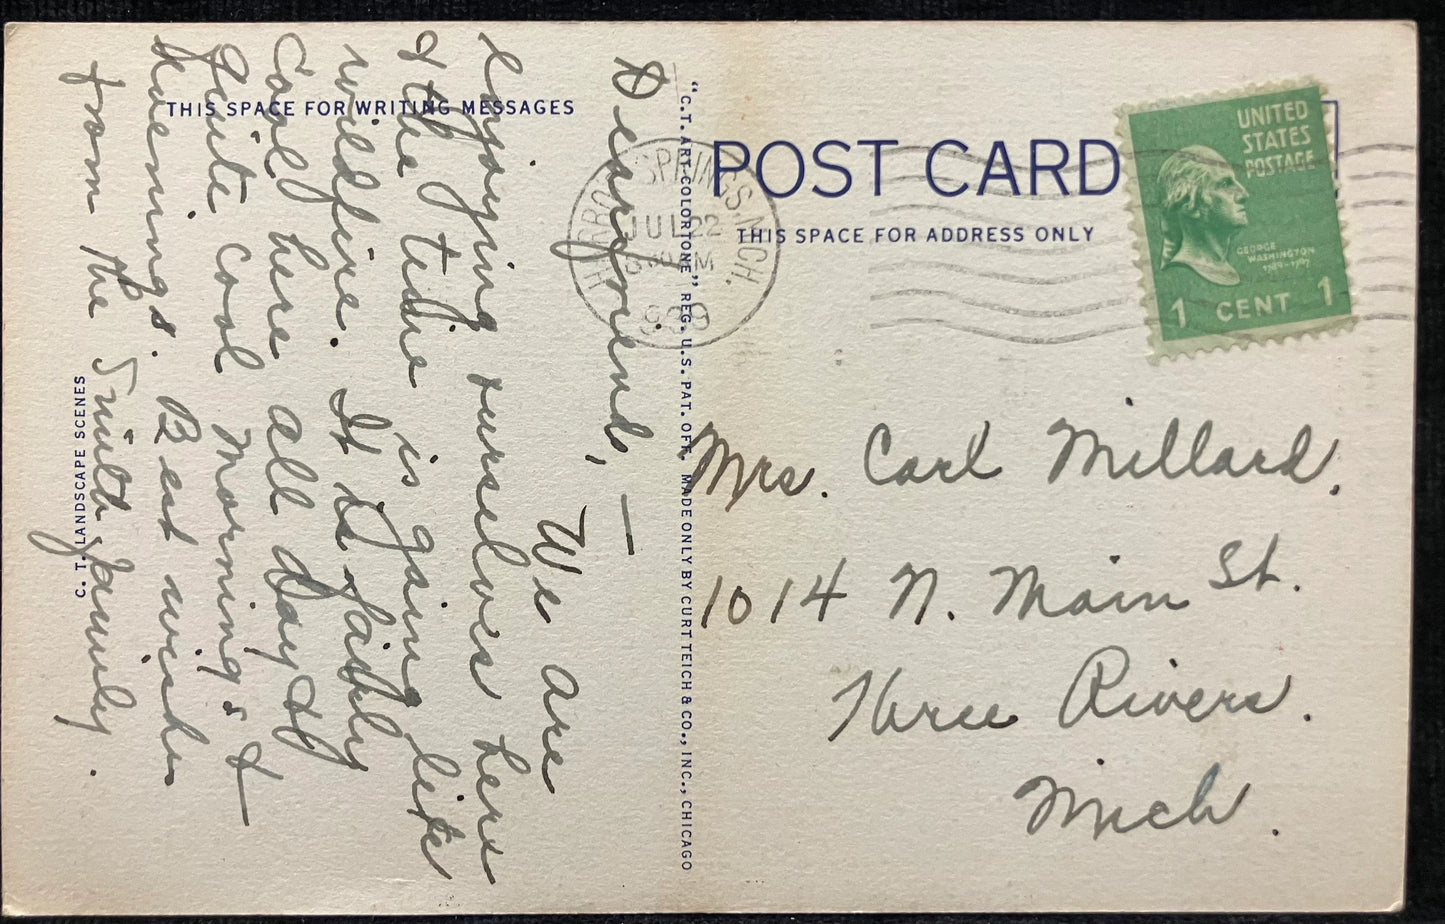 THIS SPACE FOR WRITING MESSAGES
Dear friend, —
We are
enjoying ourselves here
& the time is going like
wildfire. It is fairly
Cool here all day &
quite cool morning's &
evenings. Best wishes
from the Smith family.
C. T. LANDSCAPE SCENES
"C. T. ART-COLORTONE" REG. U. S. PAT. OFF. MADE ONLY BY CURT TEICH & CO., INC., CHICAGO
POST CARD
THIS SPACE FOR ADDRESS ONLY
SPRINGS, MICH.
JUL 22
UNITED
STATES
POSTAGE
GEORGE
WASHINGTON
1789-1797
1 CENT 1
Mrs. Carl Millard.
1014 N. Main St.
Three Rivers.
Mich.